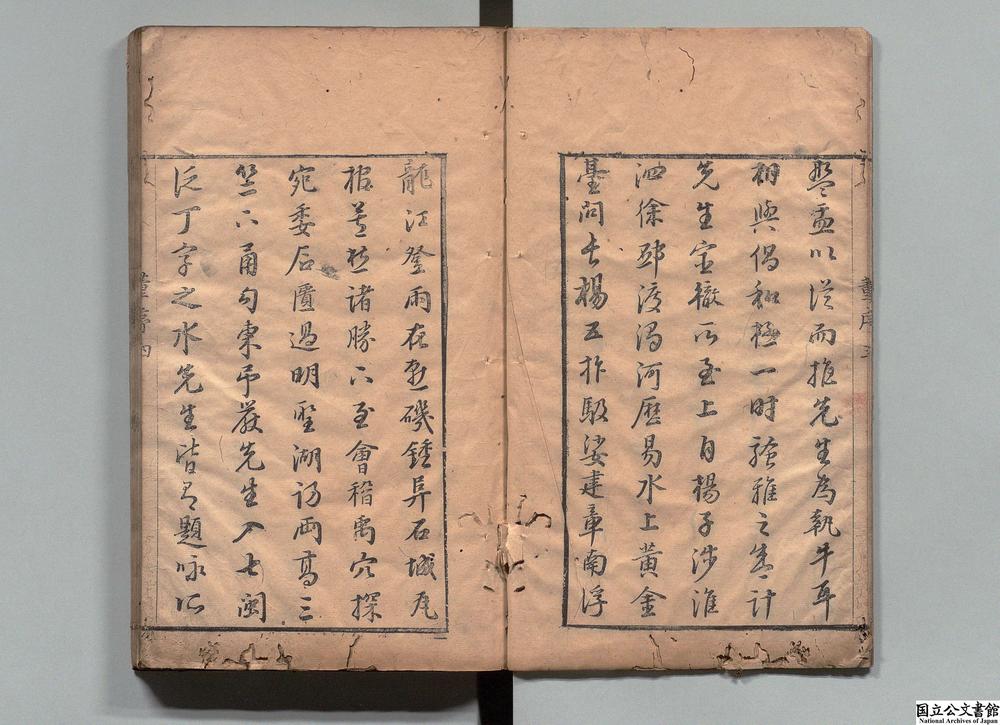 盤盂以從而推先生為執牛耳
相與倡和極一時騷雅之生計
先生宦轍所至上自楊子涉淮
泗徐邳渡濁河歷易水上黃金
臺問長楊五柞馺娑建章南浮
龍江登雨花燕磯鍾阜石城瓦
棺蓋茲諸勝下至會稽禹穴探
宛委石匱過明聖湖訪兩高三
竺下甬句東弔嚴先生入七閩
泛丁字之水先生皆有題咏所
國立公文書館
National Archives of Japan